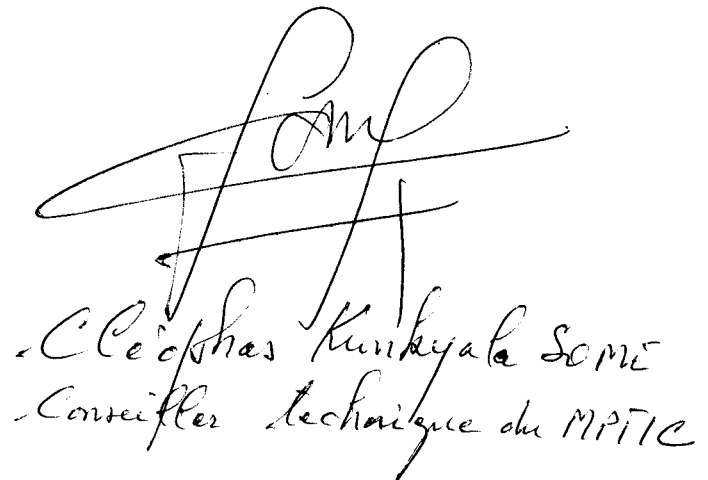 Cléophas Kunkyala SOME
Conseiller technique du MPTIC